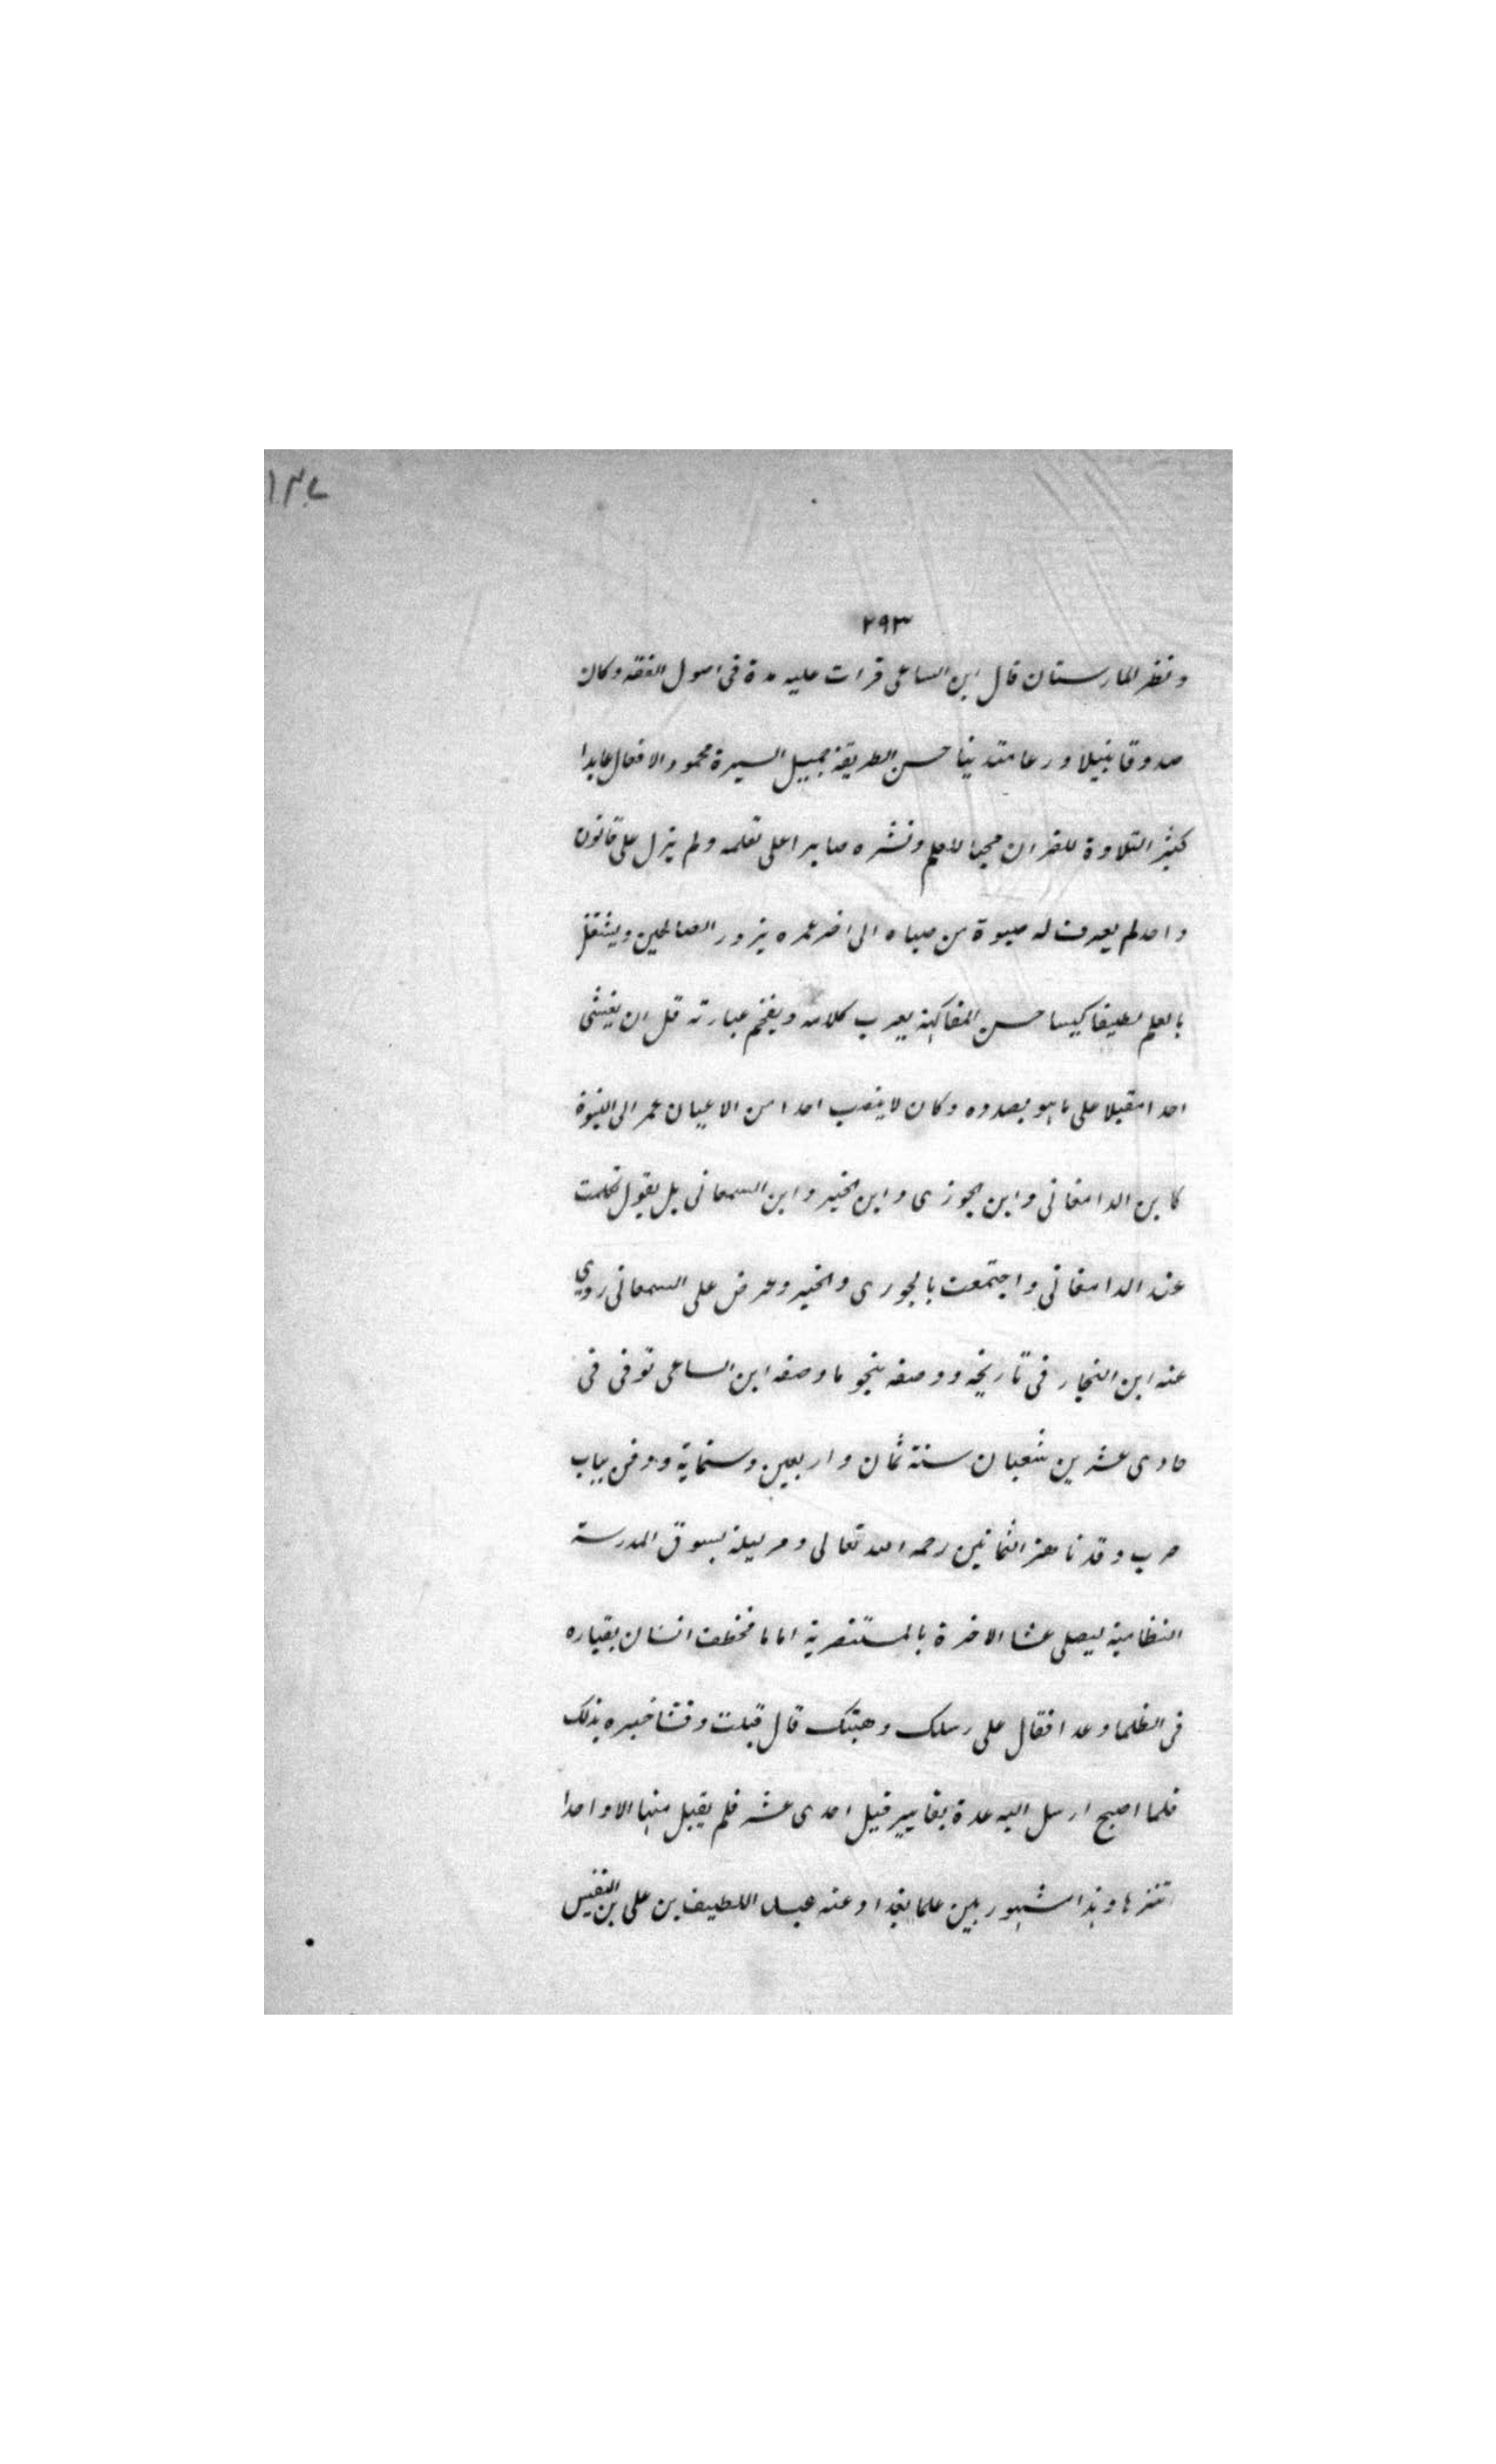 ١٣٧
٢٩٣
ونظر المارستان قال ابن الساعى قرات عليه مدة فى اصول الفقه وكان
صدوقا نبيلا ورعا متدينا حسن الطريقة جميل السيرة محمود الافعال عابدا
كثير التلاوة للقران محبا للعلم ونشره صابرا على تعلمه ولم يزل على قانون
واحد لم يعرف له صبوة من صباه الى اخر عمره يزور الصالحين ويشتغل
بالعلم لطيفا كيسا حسن المفاكهة يعرب كلامه ويفخم عبارته قل ان يغشى
احدا مقبلا على ما هو بصدده وكان لا ينصب احدا من الاعيان عمر الى
كابن الدامغانى وابن الجوزى وابن الخير وابن السمعانى بل يقول تكلمت
عند الدامغانى واجتمعت بالجورى والخير وعرض على السمعانى روى
عنه ابن النجار فى تاريخه ووصفه بنحو ما وصفه ابن الساعى توفى فى
حادى عشرين شعبان سنة ثمان واربعين وستماية ودفن بباب
حرب وقد ناهز الثمانين رحمه الله تعالى ومر ليلة بسوق المدرسة
النظامية ليصلى عشا الاخرة بالمستنصرية اماما فخطف انسان بقياره
فى الظلما وعدا فقال على رسلك وهبتك قال قبلت وفشا خبره بذلك
فلما اصبح ارسل اليه عدة بقايير قيل احدى عشر فلم يقبل منها الا واحدا
تنزها وهذا مشهور بين علما بغداد وعنه عبد اللطيف بن على بن النفيس